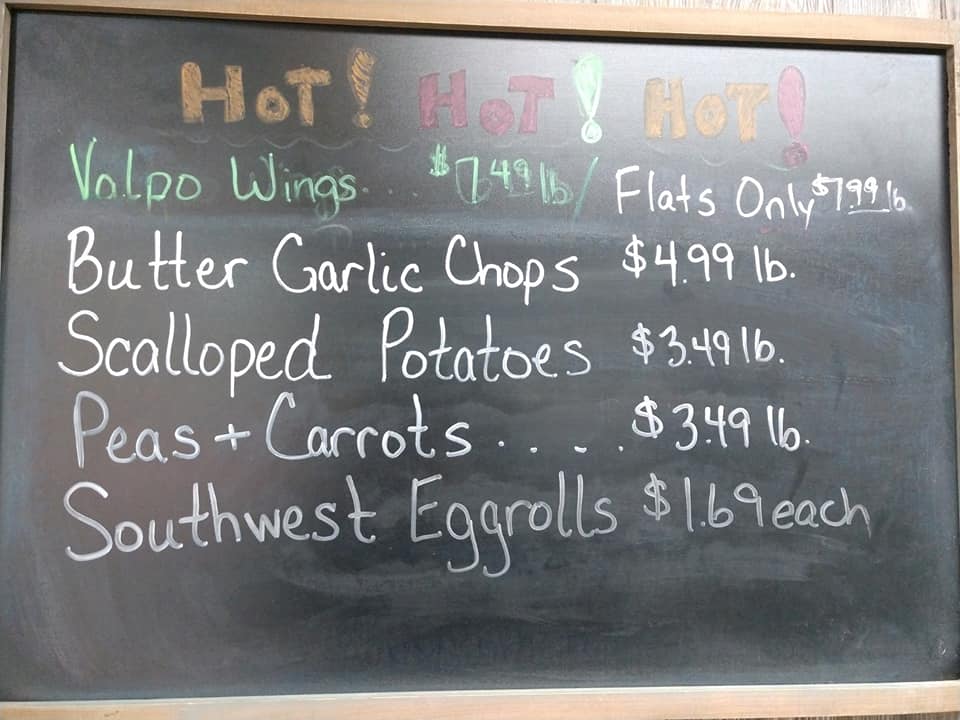 HOT! HOT! HOT!
Valpo Wings.... $7.49 lb/ Flats Only $7.99 lb
Butter Garlic Chops $4.99 lb.
Scalloped Potatoes $3.49 lb.
Peas + Carrots . . . . $3.49 lb.
Southwest Eggrolls $1.69 each